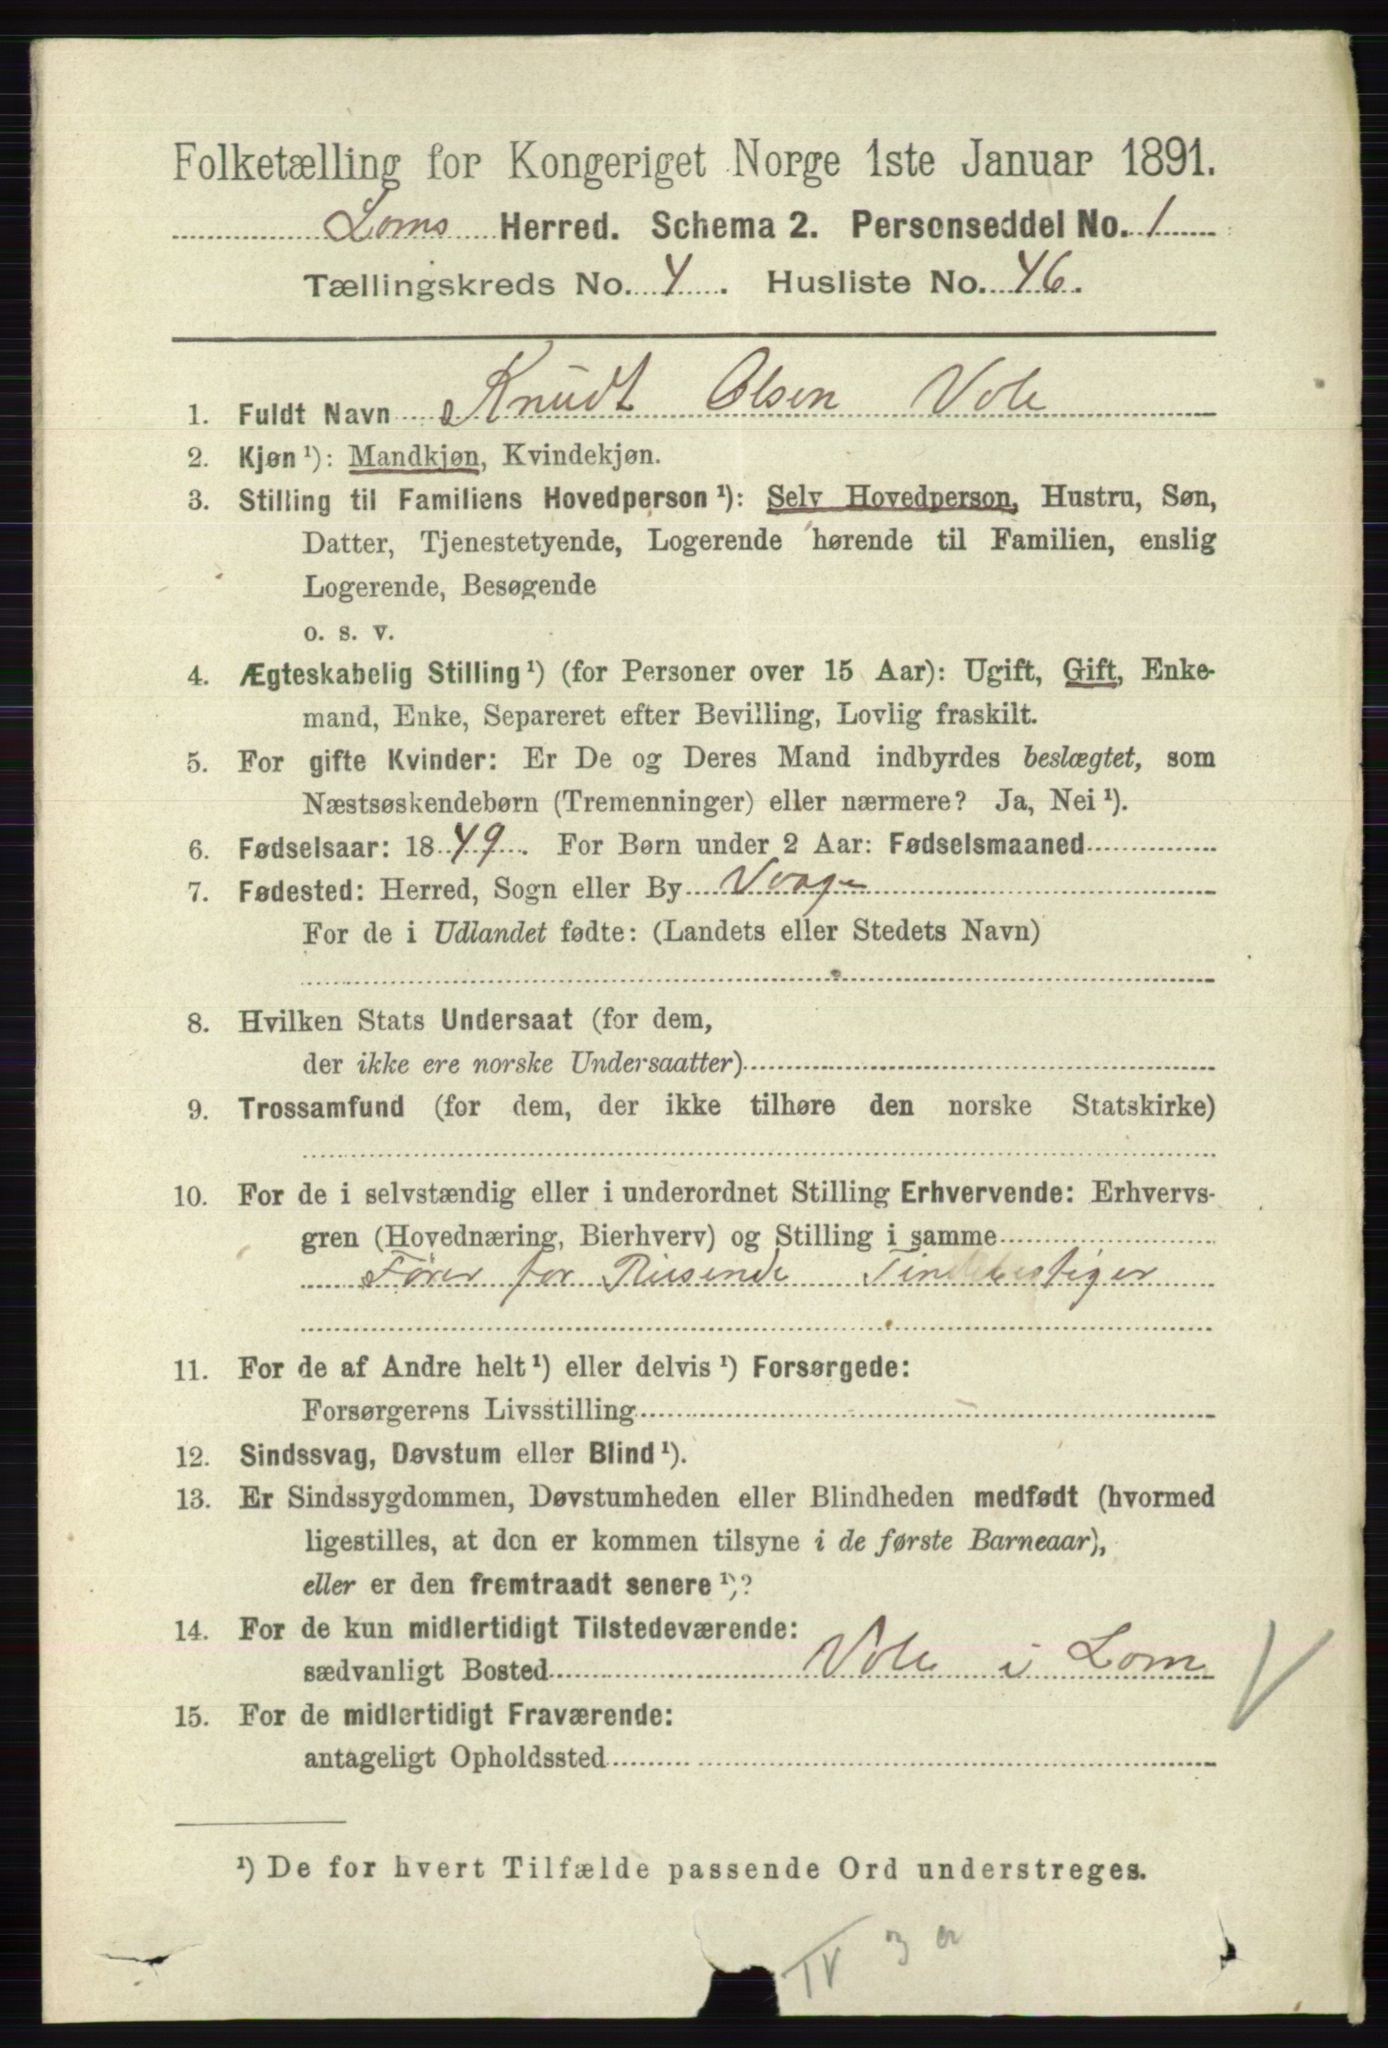 Folketælling for Kongeriget Norge 1ste Januar 1891.
Loms Herred. Schema 2. Personseddel No. 1
Tællingskreds No. 4. Husliste No. 46.
1. Fuldt Navn Knudt Olsen Vole
2. Kjøn ¹): Mandkjøn, Kvindekjøn.
3. Stilling til Familiens Hovedperson ¹): Selv Hovedperson, Hustru, Søn,
Datter, Tjenestetyende, Logerende hørende til Familien, enslig
Logerende, Besøgende
o. s. v.
4. Ægteskabelig Stilling ¹) (for Personer over 15 Aar): Ugift, Gift, Enke-
mand, Enke, Separeret efter Bevilling, Lovlig fraskilt.
5. For gifte Kvinder: Er De og Deres Mand indbyrdes beslægtet, som
Næstsøskendebørn (Tremenninger) eller nærmere? Ja, Nei ¹).
6. Fødselsaar: 1849. For Børn under 2 Aar: Fødselsmaaned
7. Fødested: Herred, Sogn eller By Vaage
For de i Udlandet fødte: (Landets eller Stedets Navn)
8. Hvilken Stats Undersaat (for dem,
der ikke ere norske Undersaatter)
9. Trossamfund (for dem, der ikke tilhøre den norske Statskirke)
10. For de i selvstændig eller i underordnet Stilling Erhvervende: Erhvervs-
gren (Hovednæring, Bierhverv) og Stilling i samme
Fører for Reisende Tindebestiger
11. For de af Andre helt ¹) eller delvis ¹) Forsørgede:
Forsørgerens Livsstilling
12. Sindssvag, Døvstum eller Blind ¹).
13. Er Sindssygdommen, Døvstumheden eller Blindheden medfødt (hvormed
ligestilles, at den er kommen tilsyne i de første Barneaar),
eller er den fremtraadt senere ¹)?
14. For de kun midlertidigt Tilstedeværende:
sædvanligt Bosted Vole i Lom
15. For de midlertidigt Fraværende:
antageligt Opholdssted
¹) De for hvert Tilfælde passende Ord understreges.
IV 3 a